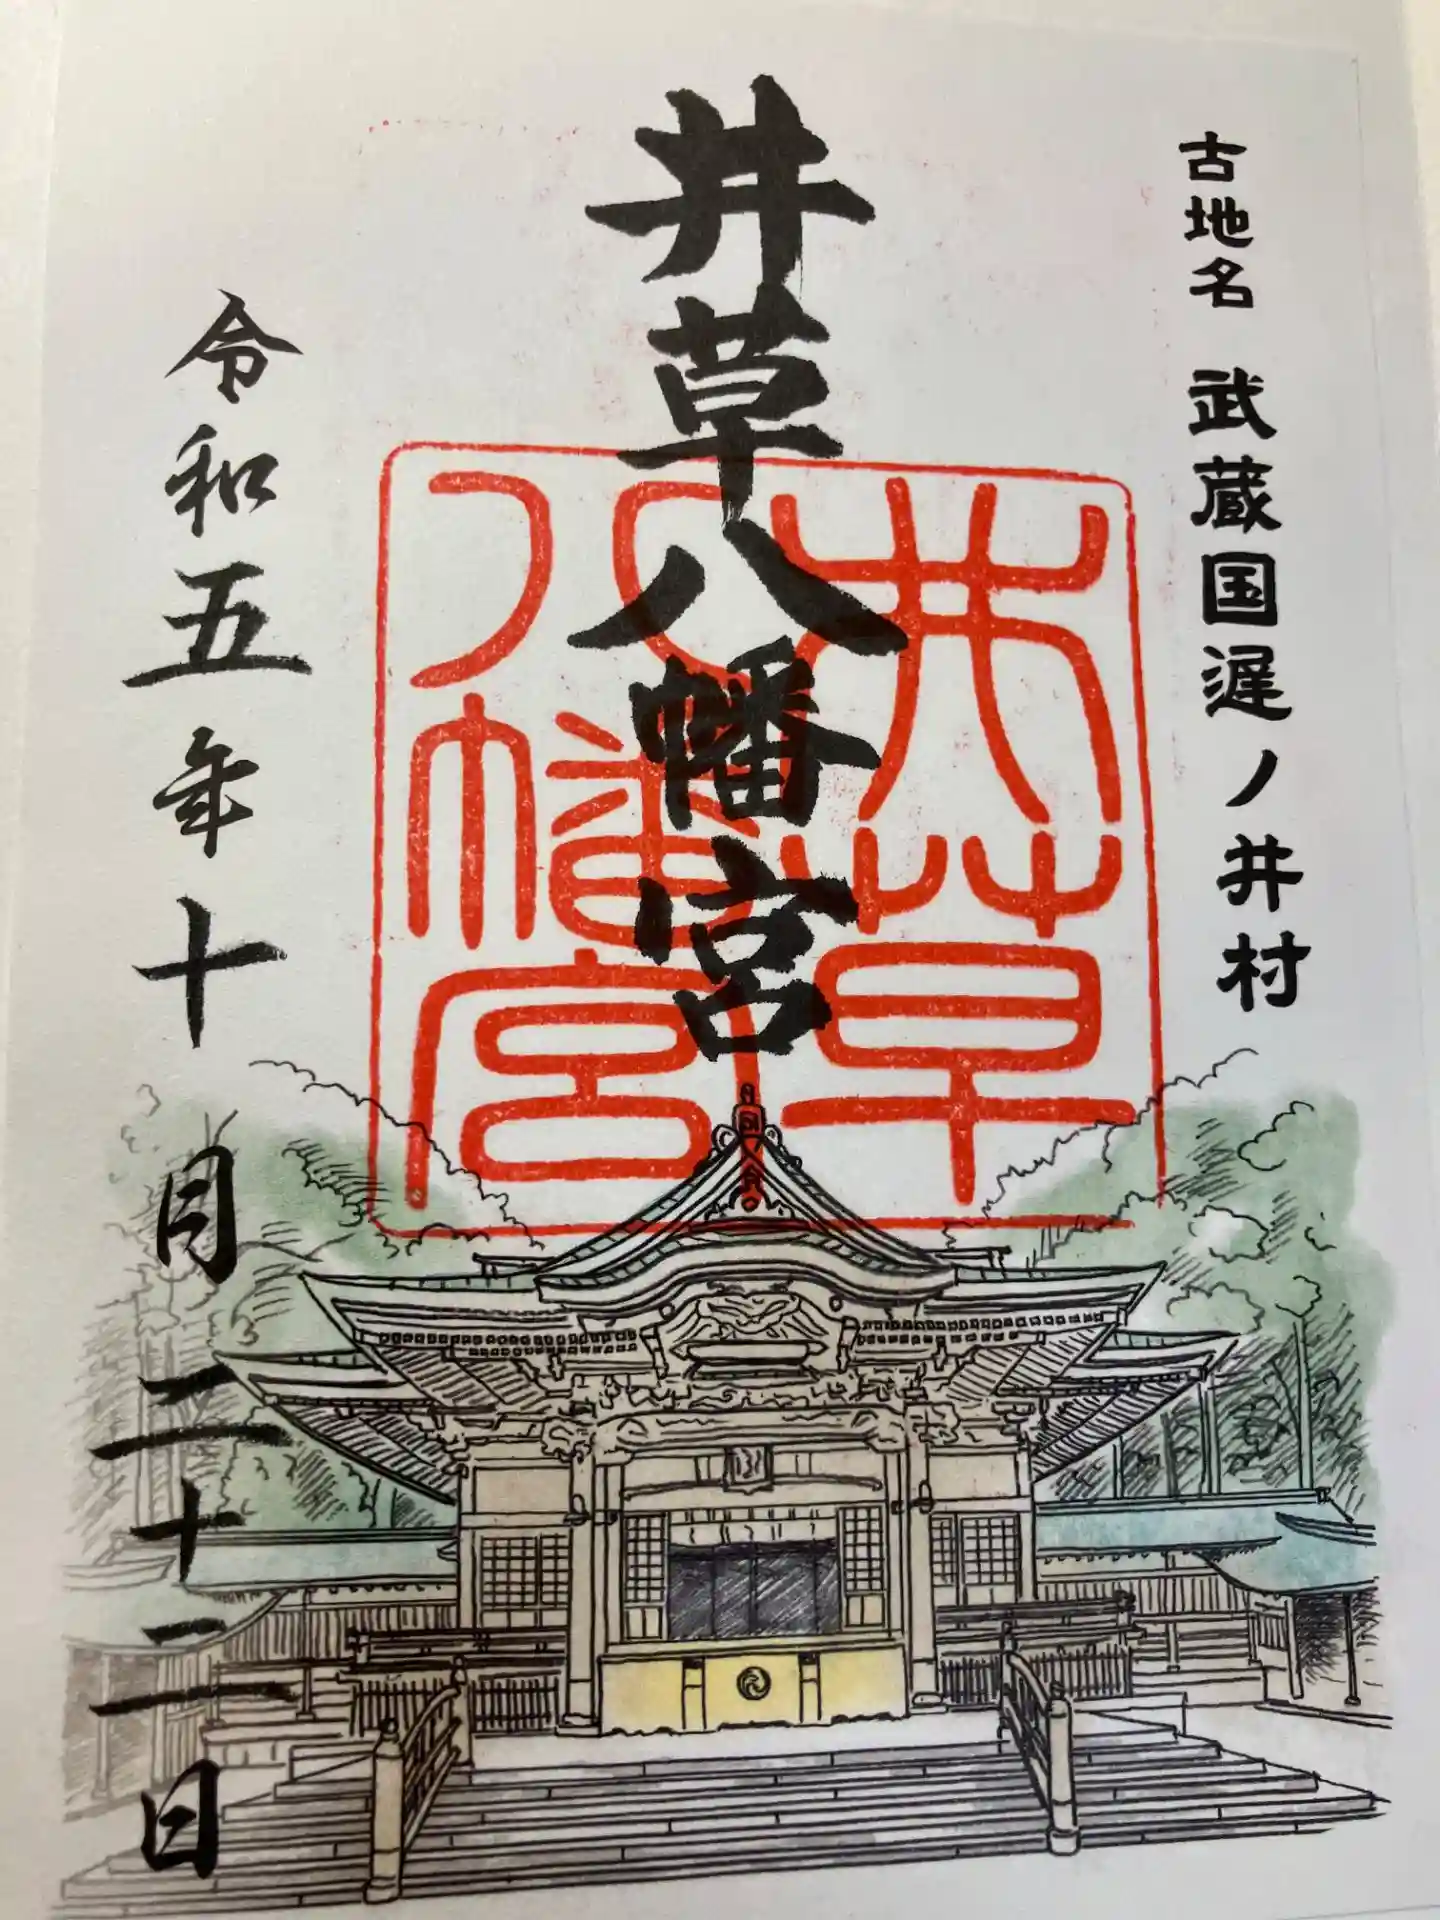 古地名 武蔵国遅ノ井村
井草八幡宮
井草
八幡宮
令和五年十月二十二日